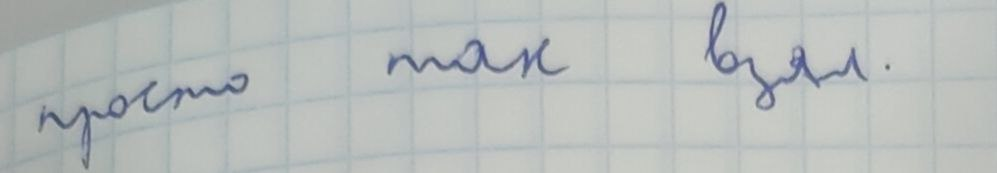 просто так взял.